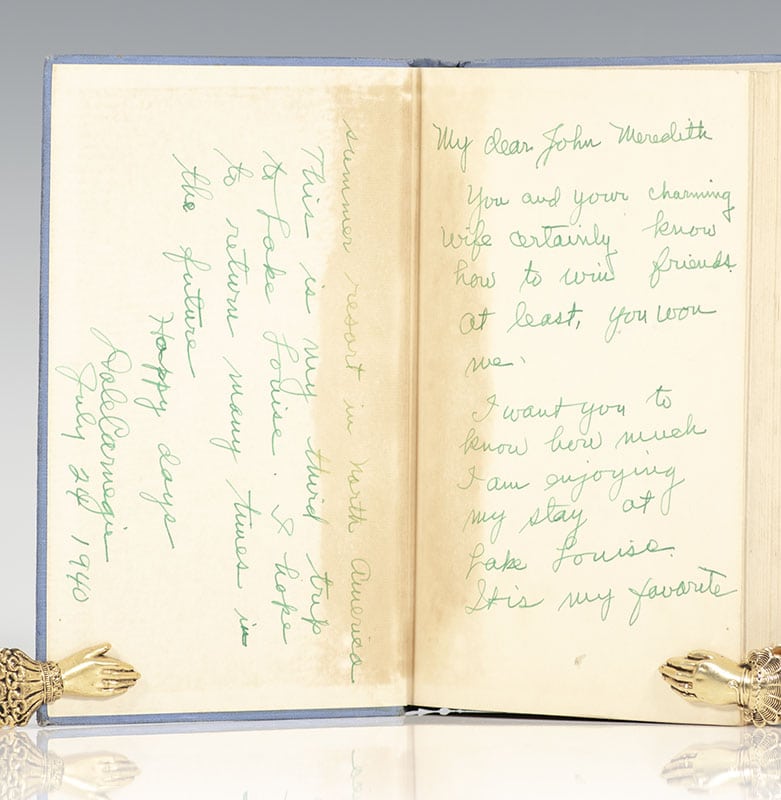 My dear John Meredith
You and your charming
wife certainly know
how to win friends.
at least, you won
me.
I want you to
know how much
I am enjoying
my stay at
Lake Louise.
It is my favorite
summer resort in North America
This is my third trip
to Lake Louise. I hope
to return many times in
the future
Happy days
Dale Carnegie
July 24 1940